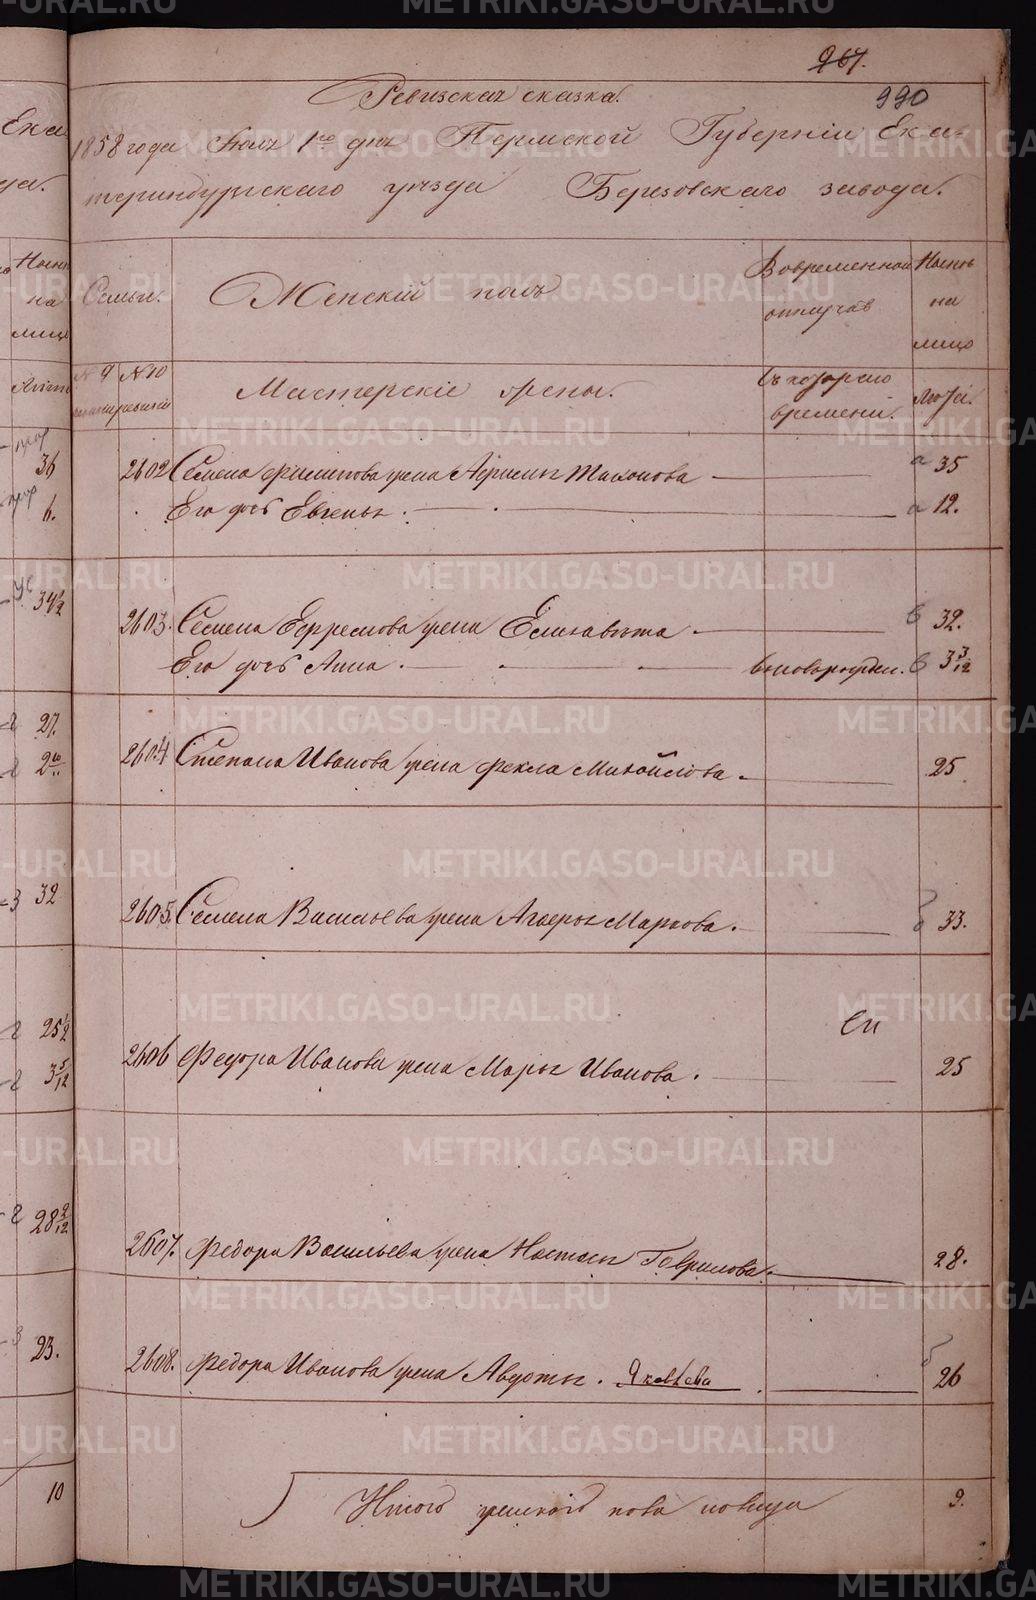 967.
990
Ревизская сказка.
1858 года Июня 1го дня Пермской Губерніи Ека-
теринбургскаго уезда Березовскаго завода.
Семьи.
Женскій полъ
Во временной
отлучке
Ныне
на
лицо
№ 9
№ 10
ревизіи
Мастерскіе жены.
Съ котораго
времени.
Лета.
2602 Семена Филипова жена Афимья 35
Его дочь Евгенья. 12.
2603. Семена Ефремова жена Елизавета 32.
Его дочь Анна. вновь рожден. 3 3/12
2604 Степана Иванова жена Фекла Михайлова. 25
2605. Семена Васильева жена Агафья Маркова. 33.
2606 Федора Иванова жена Марья Иванова. 25
2607. Федора Васильева жена Настасья Гаврилова. 28.
2608. Федора Иванова жена Авдотья. Яковлева 26
Итого женскаго пола на лицо 9.
Ека
Ныне
на
лицо
36
6.
34 1/2
27.
32
25 1/2
3 5/12
28 2/12
23.
10
METRIKI.GASO-URAL.RU